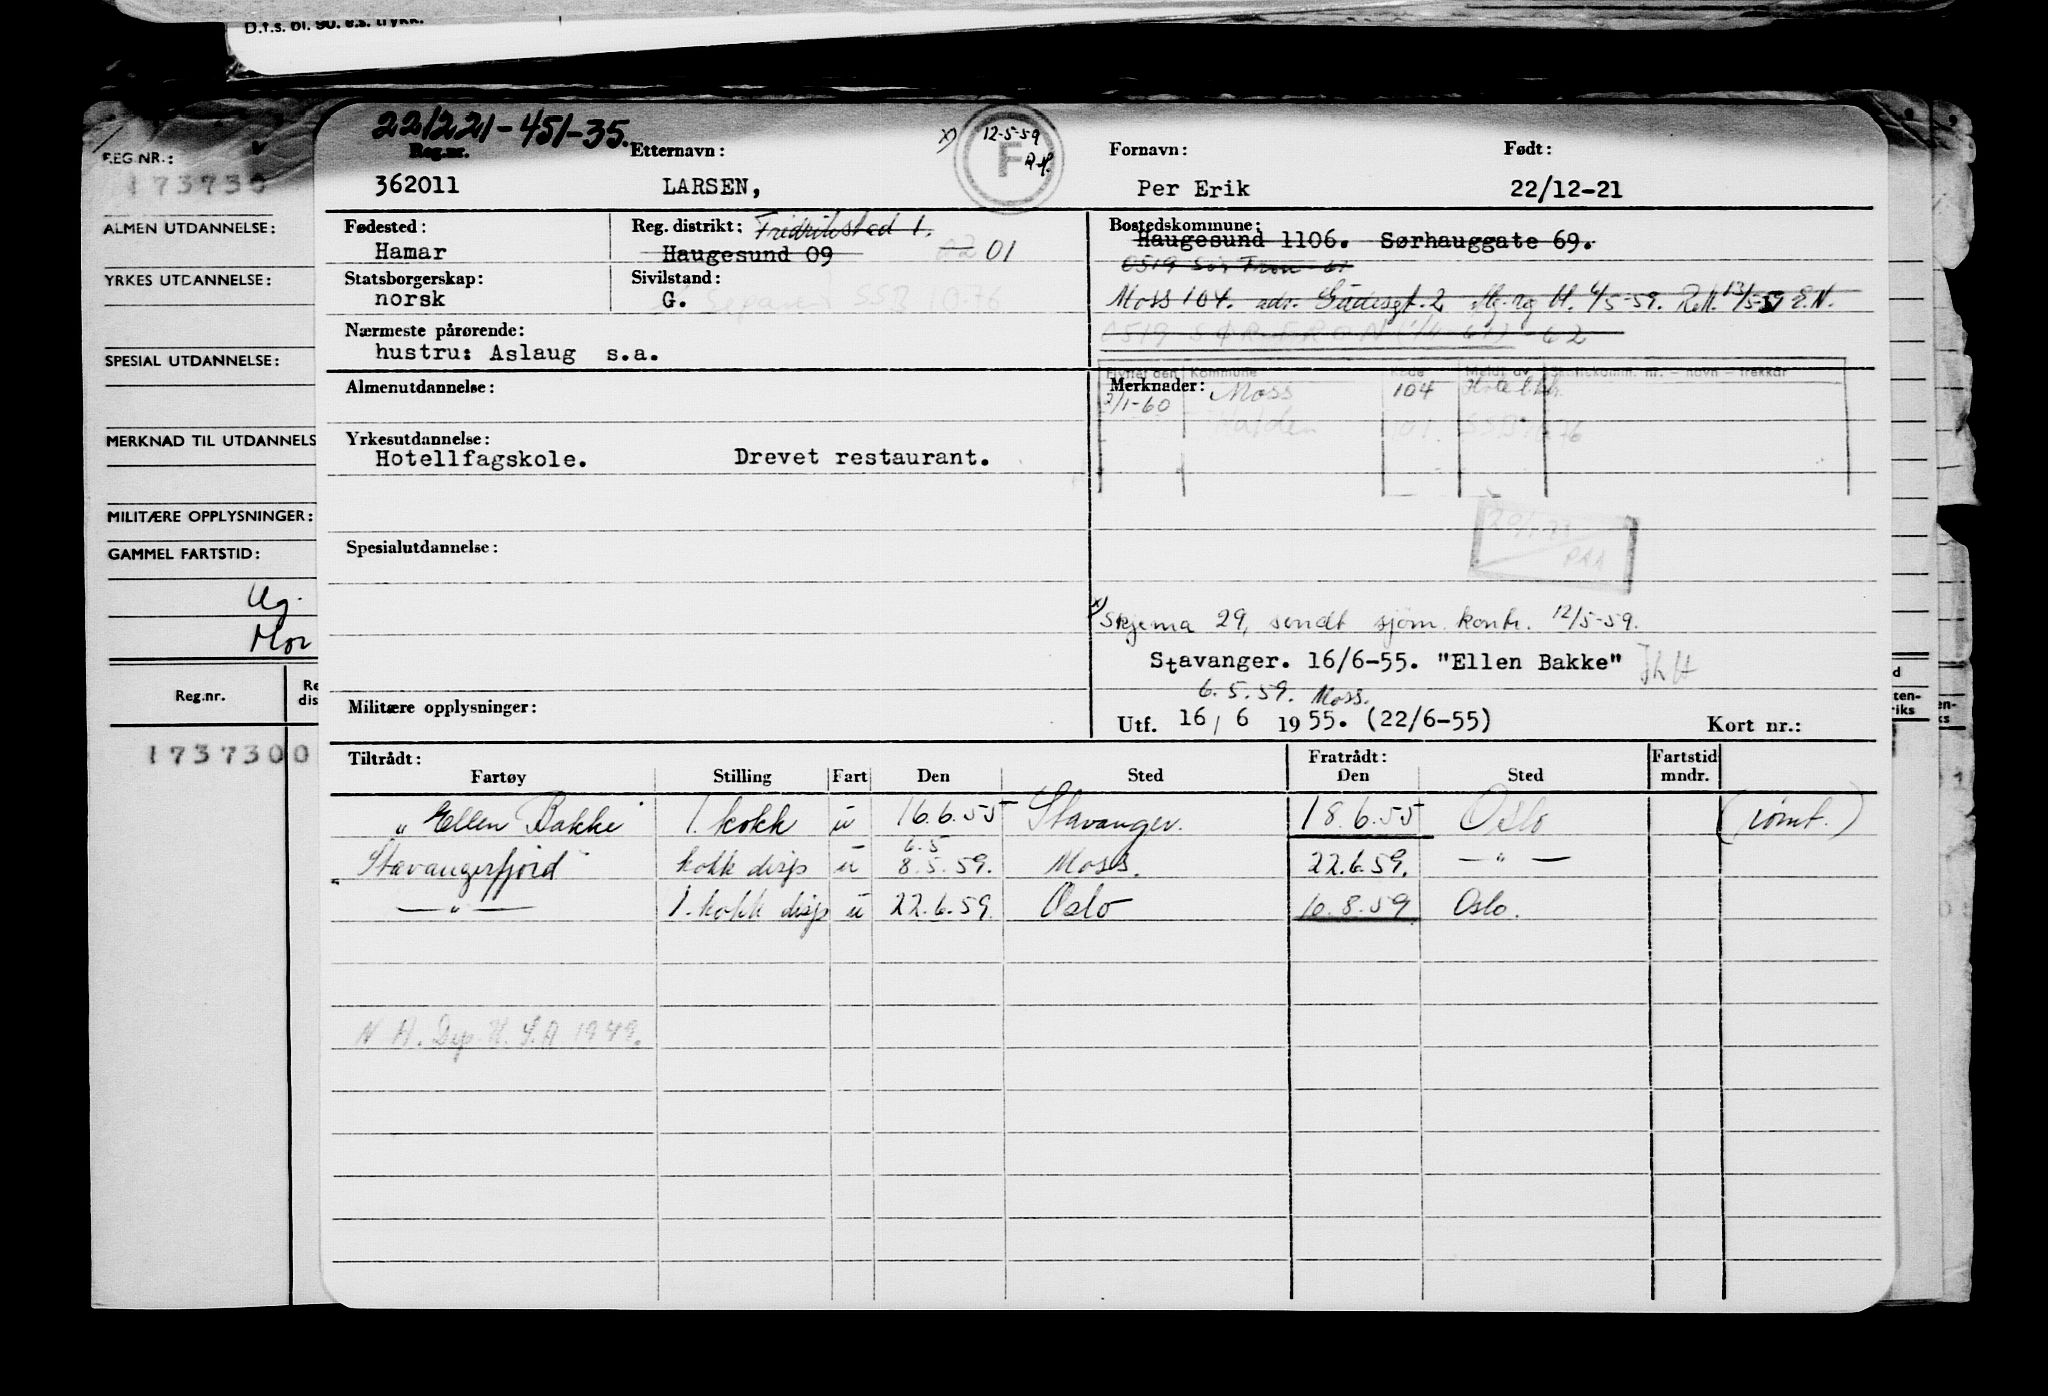 D.f.s. bl. 90. e.s. trykk.
221221-451-35.
REG.NR.:
173730
Reg.nr. Etternavn: x) 12-5-59 F Fornavn: Født:
362011 LARSEN, Per Erik 22/12-21
ALMEN UTDANNELSE:
Fødested: Reg. distrikt: Fridrikstad 1. Bostedskommune:
Hamar Haugesund 09 02 01 Haugesund 1106. Sørhauggate 69.
0519 Sør Fron 61
YRKES UTDANNELSE:
Statsborgerskap: Sivilstand:
norsk G. Moss 104. adr. 2 6/5-59. 13/5-59 E.N.
Nærmeste pårørende: 0519 SØR-FRON (1/4-61) -62
hustru: Aslaug s.a.
SPESIAL UTDANNELSE:
Flyttet den Kommune Kode Meldt av
Almenutdannelse: Merknader:
2/1-60 Moss 104
MERKNAD TIL UTDANNELS
Halden 101
Yrkesutdannelse:
Hotellfagskole. Drevet restaurant.
MILITÆRE OPPLYSNINGER:
GAMMEL FARTSTID:
Spesialutdannelse:
Ug.
Mor
x) Skjema 29, sendt sjøm. kontr. 12/5-59.
Stavanger. 16/6-55. "Ellen Bakke"
6.5.59. Moss.
Militære opplysninger: Utf. 16/6 1955. (22/6-55) Kort nr.:
Reg.nr. Re dis
1737300
Tiltrådt: Fratrådt: Fartstid
Fartøy Stilling Fart Den Sted Den Sted mndr.
"Ellen Bakke" 1. kokk u 16.6.55 Stavanger. 18.6.55 Oslo (rømt.)
6.5
"Stavangerfjord" kokk disp u 8.5.59. Moss. 22.6.59. — " —
— " — 1. kokk disp u 22.6.59 Oslo 10.8.59 Oslo.
N A. Dep. U.S.A 1949.